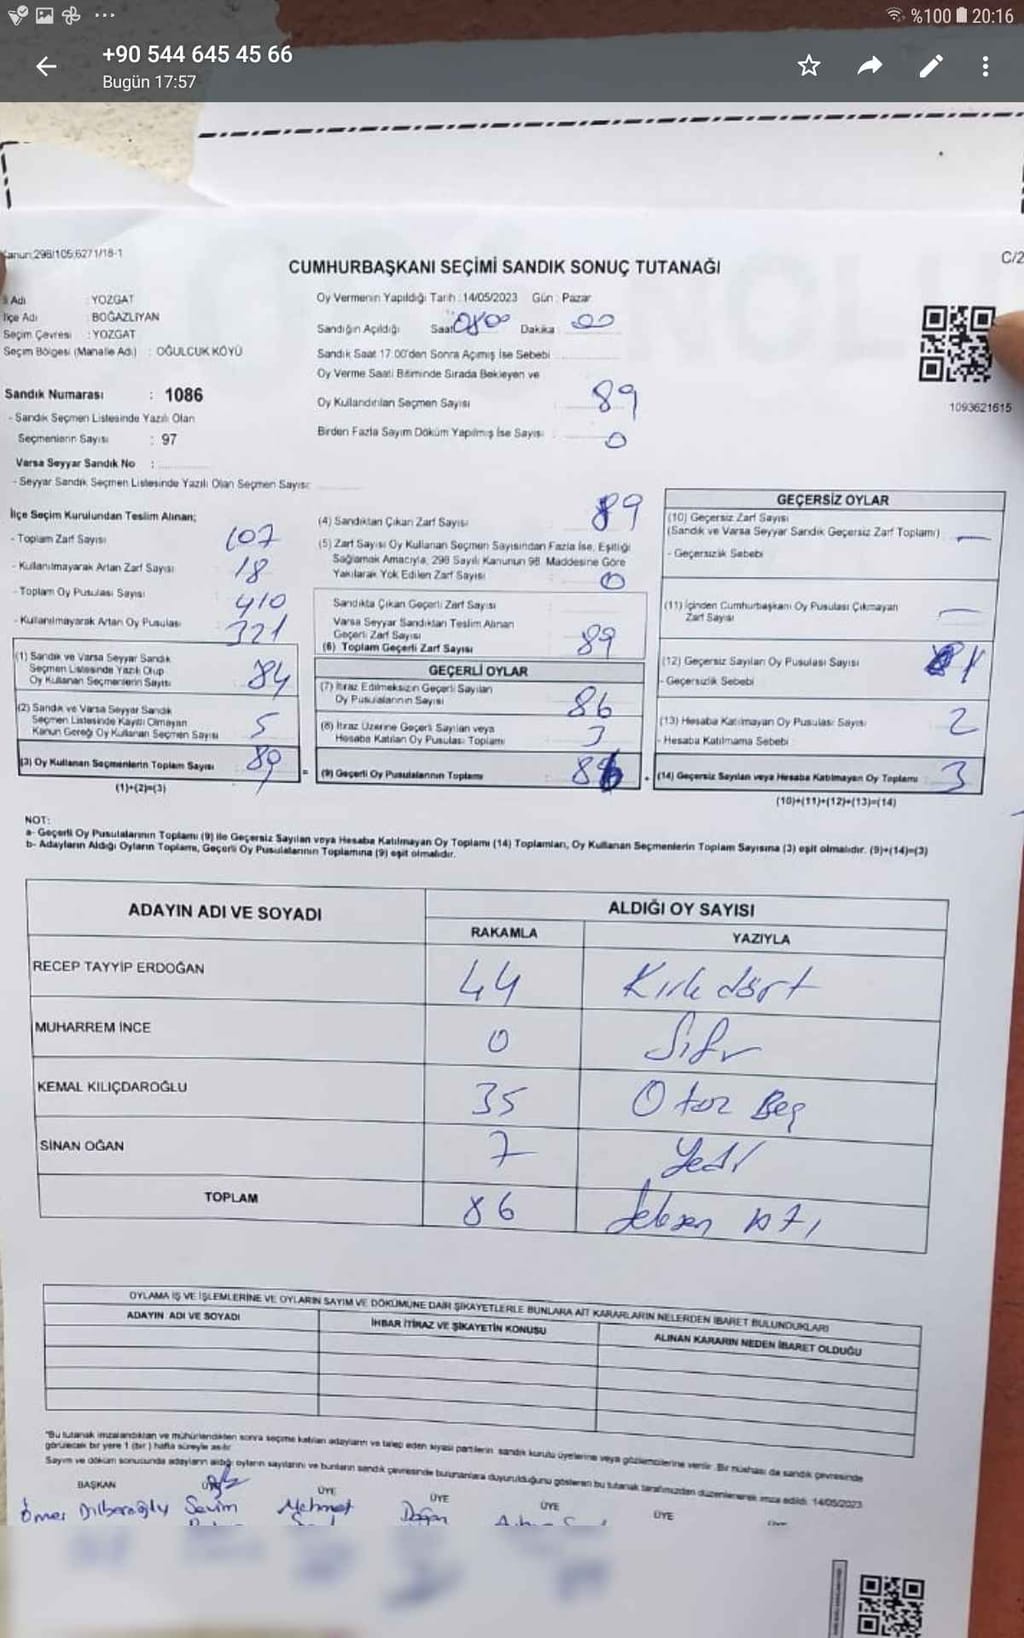 %100 20:16
+90 544 645 45 66
Bugün 17:57
Kanun:298/105;6271/18-1
C/2
CUMHURBAŞKANI SEÇİMİ SANDIK SONUÇ TUTANAĞI
İl Adı : YOZGAT
İlçe Adı : BOĞAZLIYAN
Seçim Çevresi : YOZGAT
Seçim Bölgesi (Mahalle Adı) : OĞULCUK KÖYÜ
Sandık Numarası : 1086
- Sandık Seçmen Listesinde Yazılı Olan
Seçmenlerin Sayısı : 97
Varsa Seyyar Sandık No :
- Seyyar Sandık Seçmen Listesinde Yazılı Olan Seçmen Sayısı:
Oy Vermenin Yapıldığı Tarih :14/05/2023 Gün : Pazar
Sandığın Açıldığı Saat 0800 Dakika 00
Sandık Saat 17.00'den Sonra Açımış İse Sebebi
Oy Verme Saati Bitiminde Sırada Bekleyen ve
Oy Kullandırılan Seçmen Sayısı 89
Birden Fazla Sayım Döküm Yapılmış İse Sayısı : 0
1093621615
İlçe Seçim Kurulundan Teslim Alınan;
- Toplam Zarf Sayısı 107
- Kullanılmayarak Artan Zarf Sayısı 18
- Toplam Oy Pusulası Sayısı 410
- Kullanılmayarak Artan Oy Pusulası 321
(1) Sandık ve Varsa Seyyar Sandık
Seçmen Listesinde Yazılı Olup
Oy Kullanan Seçmenlerin Sayısı 84
(2) Sandık ve Varsa Seyyar Sandık
Seçmen Listesinde Kayıtlı Olmayan
Kanun Gereği Oy Kullanan Seçmen Sayısı 5
(3) Oy Kullanan Seçmenlerin Toplam Sayısı 89
(1)+(2)=(3)
(4) Sandıktan Çıkan Zarf Sayısı 89
(5) Zarf Sayısı Oy Kullanan Seçmen Sayısından Fazla İse, Eşitliği
Sağlamak Amacıyla, 298 Sayılı Kanunun 98. Maddesine Göre
Yakılarak Yok Edilen Zarf Sayısı 0
Sandıkta Çıkan Geçerli Zarf Sayısı
Varsa Seyyar Sandıktan Teslim Alınan
Geçerli Zarf Sayısı
(6) Toplam Geçerli Zarf Sayısı 89
GEÇERLİ OYLAR
(7) İtiraz Edilmeksizin Geçerli Sayılan
Oy Pusulalarının Sayısı 86
(8) İtiraz Üzerine Geçerli Sayılan veya
Hesaba Katılan Oy Pusulası Toplamı 3
(9) Geçerli Oy Pusulalarının Toplamı 86
GEÇERSİZ OYLAR
(10) Geçersiz Zarf Sayısı
(Sandık ve Varsa Seyyar Sandık Geçersiz Zarf Toplamı) —
- Geçersizlik Sebebi
(11) İçinden Cumhurbaşkanı Oy Pusulası Çıkmayan
Zarf Sayısı —
(12) Geçersiz Sayılan Oy Pusulası Sayısı
- Geçersizlik Sebebi
(13) Hesaba Katılmayan Oy Pusulası Sayısı 2
- Hesaba Katılmama Sebebi
(14) Geçersiz Sayılan veya Hesaba Katılmayan Oy Toplamı 3
(10)+(11)+(12)+(13)=(14)
NOT:
a- Geçerli Oy Pusulalarının Toplamı (9) ile Geçersiz Sayılan veya Hesaba Katılmayan Oy Toplamı (14) Toplamları, Oy Kullanan Seçmenlerin Toplam Sayısına (3) eşit olmalıdır. (9)+(14)=(3)
b- Adayların Aldığı Oyların Toplamı, Geçerli Oy Pusulalarının Toplamına (9) eşit olmalıdır.
ADAYIN ADI VE SOYADI
ALDIĞI OY SAYISI
RAKAMLA YAZIYLA
RECEP TAYYİP ERDOĞAN 44 Kırkdört
MUHARREM İNCE 0 Sıfır
KEMAL KILIÇDAROĞLU 35 Otuz Beş
SİNAN OĞAN 7 Yedi
TOPLAM 86 Seksen altı
OYLAMA İŞ VE İŞLEMLERİNE VE OYLARIN SAYIM VE DÖKÜMÜNE DAİR ŞİKAYETLERLE BUNLARA AİT KARARLARIN NELERDEN İBARET BULUNDUKLARI
ADAYIN ADI VE SOYADI
İHBAR İTİRAZ VE ŞİKAYETİN KONUSU
ALINAN KARARIN NEDEN İBARET OLDUĞU
"Bu tutanak imzalandıktan ve mühürlendikten sonra seçime katılan adayların ve talep eden siyasi partilerin sandık kurulu üyelerine veya gözlemcilerine verilir. Bir nüshası da sandık çevresinde
görülecek bir yere 1 (bir) hafta süreyle asılır.
Sayım ve döküm sonucunda adayların aldığı oyların sayılarını ve bunların sandık çevresinde bulunanlara duyurulduğunu gösteren bu tutanak tarafımızdan düzenlenerek imza edildi. 14/05/2023
BAŞKAN ÜYE ÜYE ÜYE ÜYE ÜYE
Ömer Dilberoğlu Sevim Mehmet Doğan